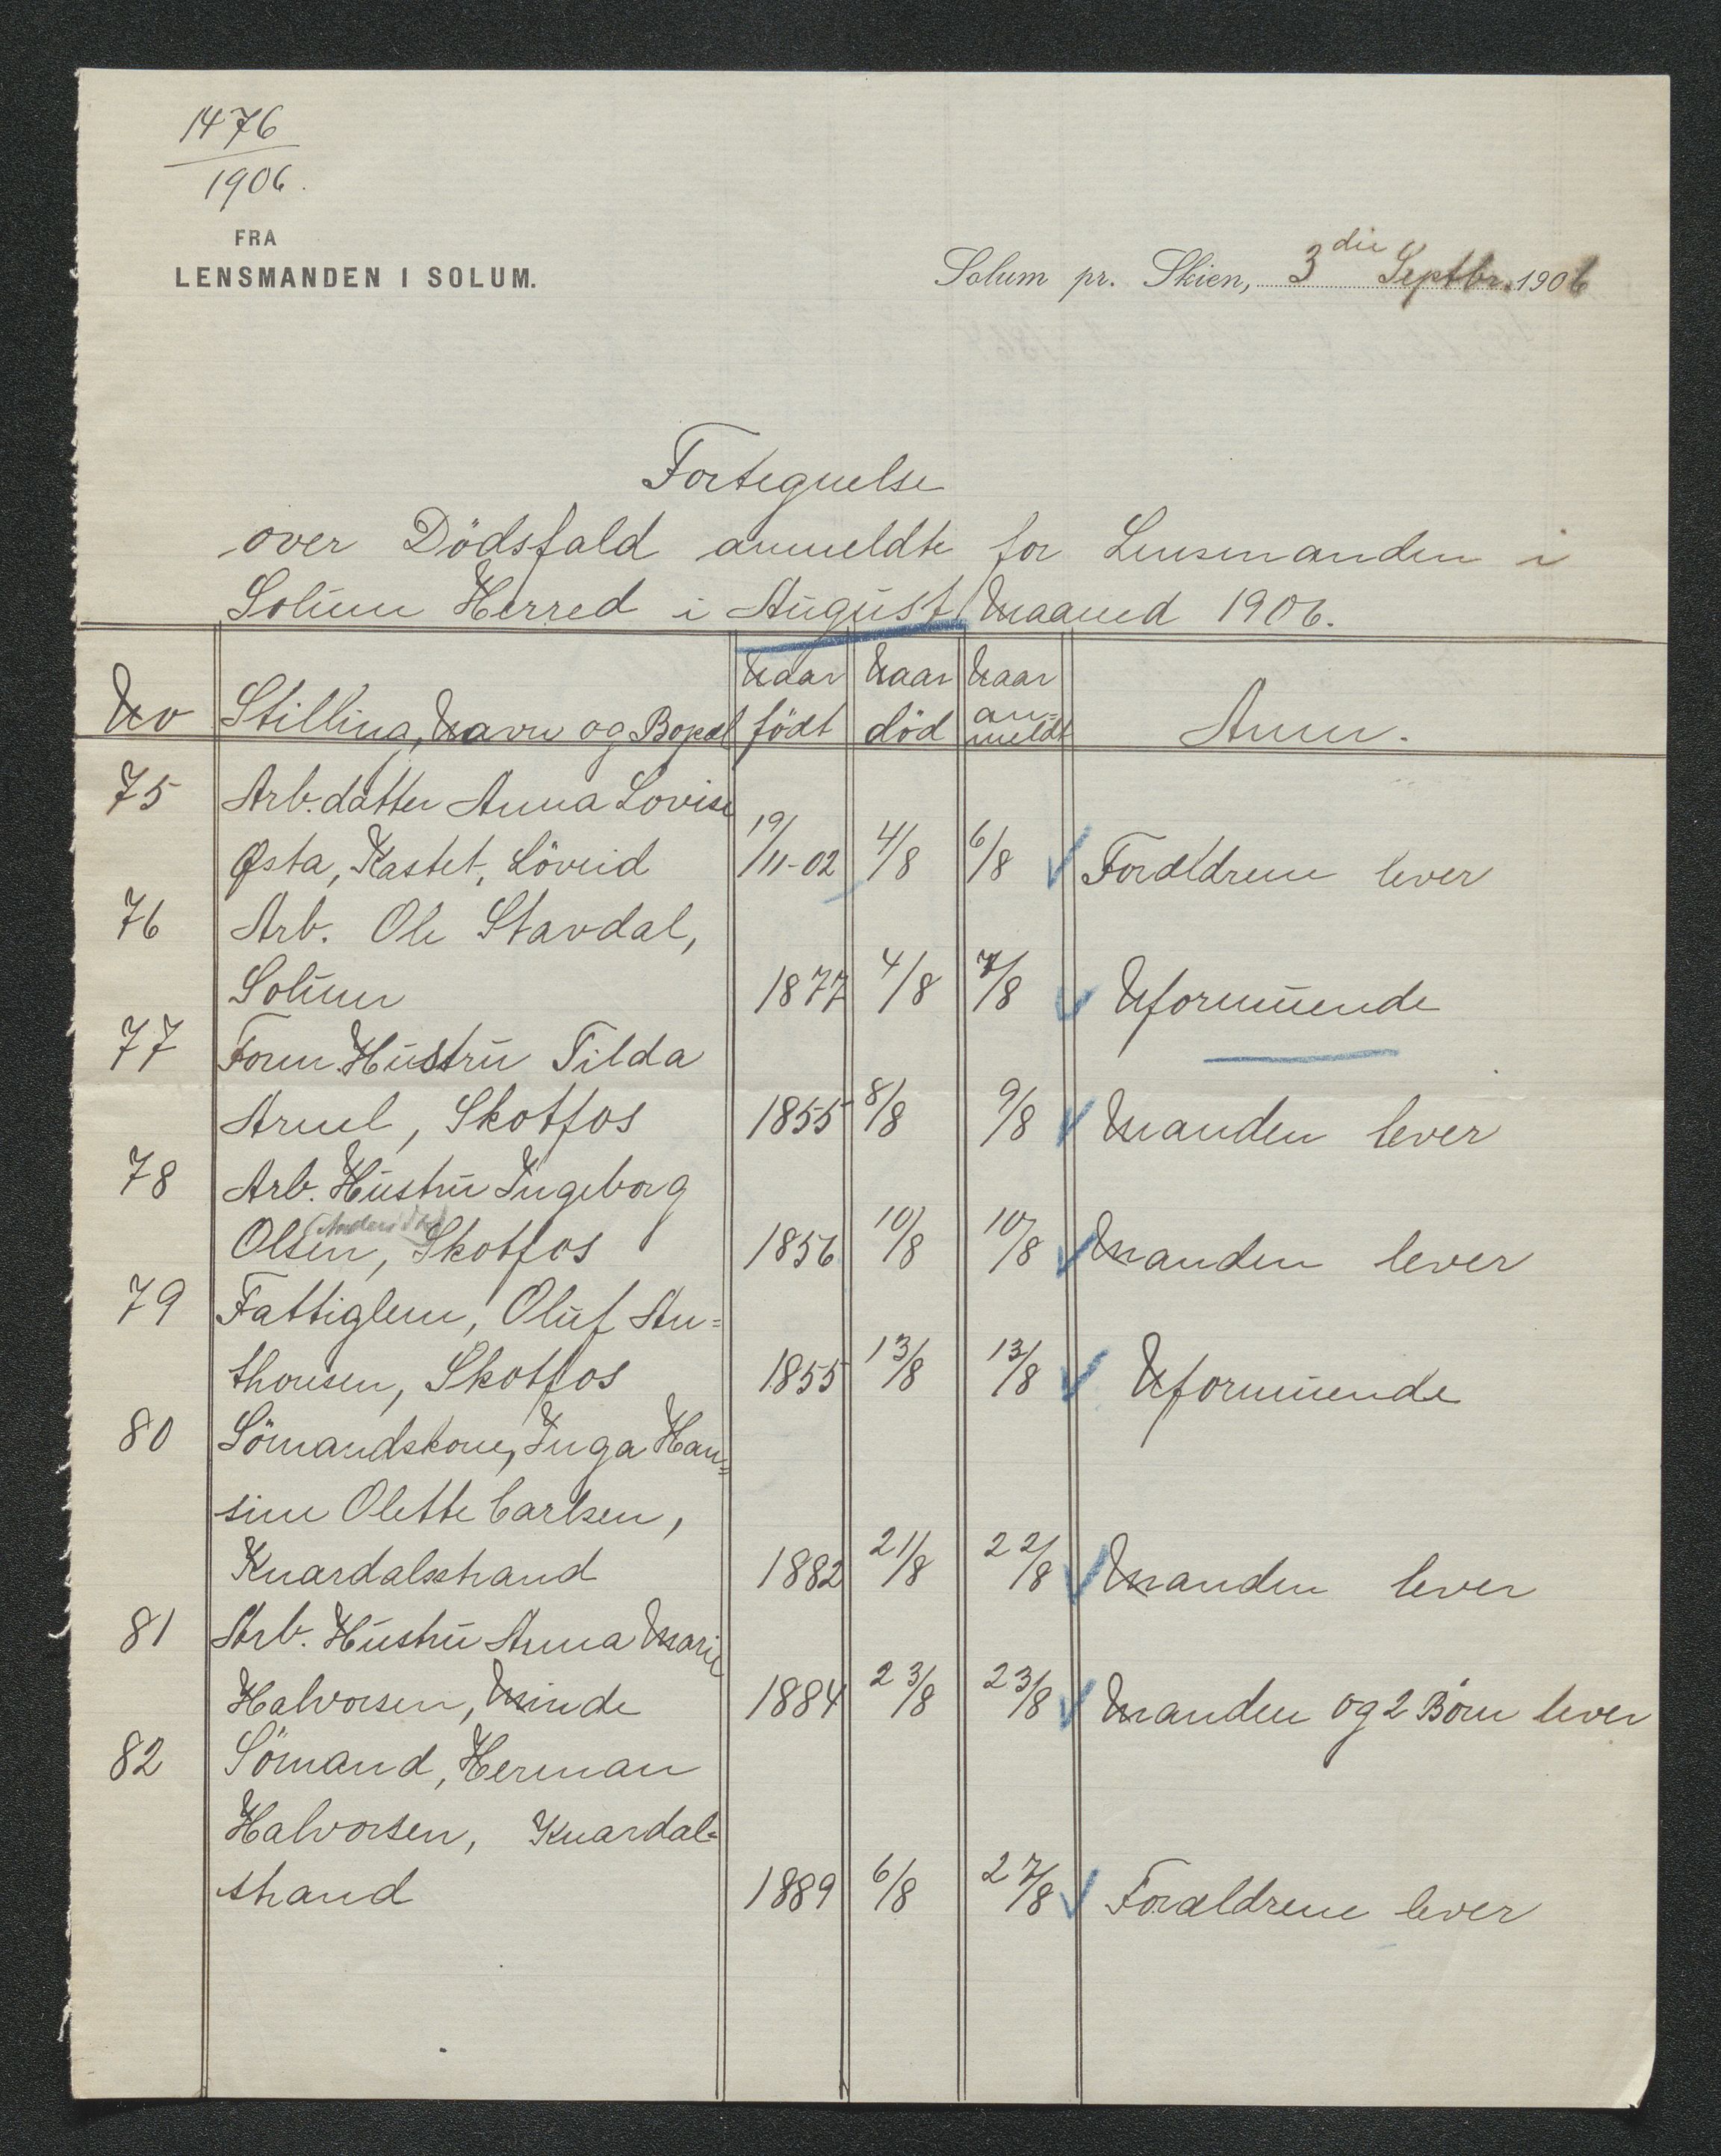 1476
1906.
FRA
LENSMANDEN I SOLUM.
Solum pr. Skien, 3die Septbr. 1906
Fortegnelse
over Dödsfald anmeldte for Lensmanden i
Solum Herred i August Maaned 1906.
No Stilling, Navn og Bopæl Naar født Naar död Naar an=meldt Anm.
75 Arb. datter Anna Lovise
Østa, Kastet, Löveid 19/11-02 4/8 6/8 Forældrene lever
76 Arb. Ole Stavdal,
Solum 1877 4/8 7/8 Uformuende
77 Form. Hustru Tilda
Arnel, Skotfos 1855 8/8 9/8 Manden lever
78 Arb. Hustru Ingeborg
Olsen, Skotfos 1856 10/8 10/8 Manden lever
79 Fattiglem, Oluf An=
thonsen, Skotfos 1855 13/8 13/8 Uformuende
80 Sömandskone, Inga Han=
sine Olette Carlsen,
Knardalsstrand 1882 21/8 22/8 Manden lever
81 Arb. Hustru Anna Marie
Halvorsen, Minde 1884 23/8 23/8 Manden og 2 Börn lever
82 Sömand, Herman
Halvorsen, Knardal=
strand 1889 6/8 27/8 Forældrene lever